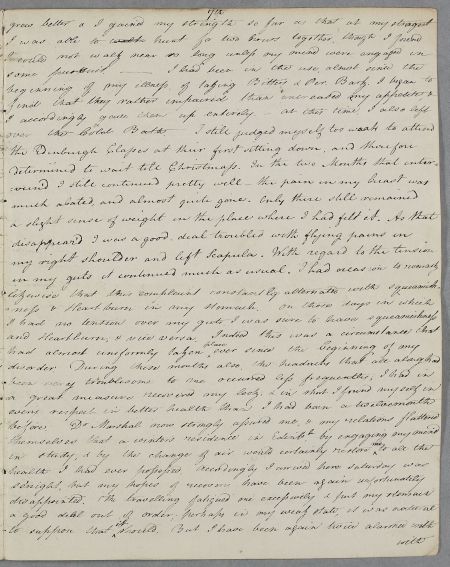 grew better & I gained my strength so far as that at my strongest
I was able to hunt for two hours together, though I found
I could not walk near so long unless my mind were engaged in
some pursuit. — I had been in the use almost since the
beginning of my illness of taking Bitters & Per. Bark. I began to
find that they rather impaired than increased my appetite &
I accordingly gave them up entirely — at this time I also left
over the Cold Bath — I still judged myself too weak to attend
the Edinburgh Classes at their first sitting down, and therefore
determined to wait till Christmass. In the two Months that inter-
vened I still continued pretty well — the pain in my breast was
much abated, and almost quite gone. Only there still remained
a slight sense of weight in the place where I had felt it. As that
disappeared I was a good deal troubled with flying pains in
my right shoulder and left Scapula. With regard to the tension
in my guts it continued much as usual. I had occasion to remark
likewise that this complaint constantly alternated with squeamish-
ness & Heartburn in my stomach. on those days in which
I had no tension over my guts I was sure to have squeamishness
and Heartburn, & vice versa. Indeed this was a circumstance that
had almost uniformly taken place ever since the beginning of my
disorder. During these months also, the headachs that all along had
been very troublesome to me occurred less frequently, I had in
a great measure recovered my looks, & in short I found myself in
every respect in better health than I had been a twelvemonth
before. Dr Marshal now strongly assured me, & my relations flattered
themselves that a winters residence in Edinbr by engaging my mind
in study, & by the change of air would certainly restore me to all the
health I had ever possessed. Accordingly I arrived here saturday was
sennight, but my hopes of recovery have been again unfortunately
disappointed. The travelling fatigued me excessively & put my stomach
a good deal out of order, perhaps in my weak state, it was natural
to suppose that it should. But I have been again twice alarmed with
with